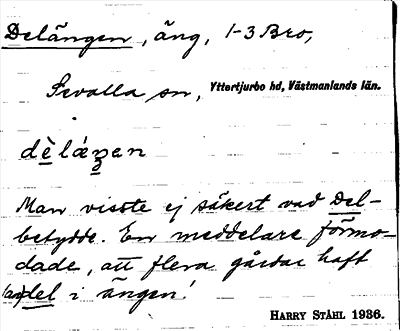 Delängen, äng, 1-3 Bro,
Sevalla sn, Yttertjurbo hd, Västmanlands län.
dèláŋen
Man visste ej säkert vad Del-
betydde. En meddelare förmo-
dade, att flera gårdar haft
(an)del i ängen!
HARRY STÅHL 1936.